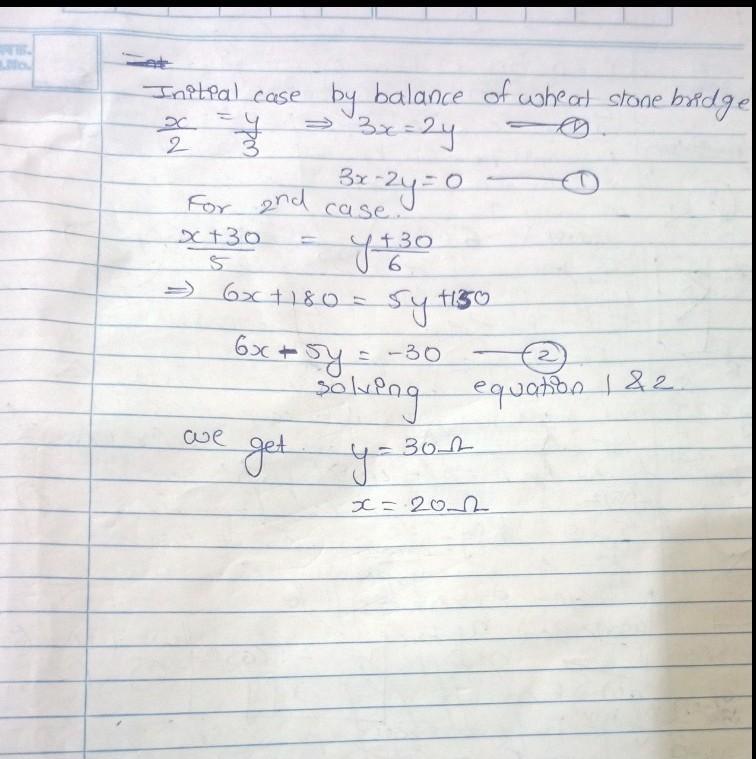 Initial case by balance of wheat stone bridge
x/2 = y/3 ⇒ 3x = 2y
3x - 2y = 0 — ①
For 2nd case.
x+30/5 = y+30/6
⇒ 6x + 180 = 5y + 150
6x - 5y = -30 — ②
solving equation 1 & 2.
we get y = 30Ω
x = 20Ω